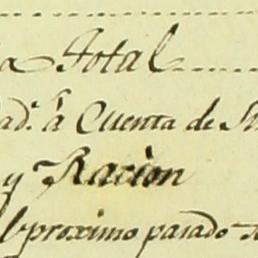 a Total
ad.ˢ á Cuenta de Su
y Racion
proximo pasado